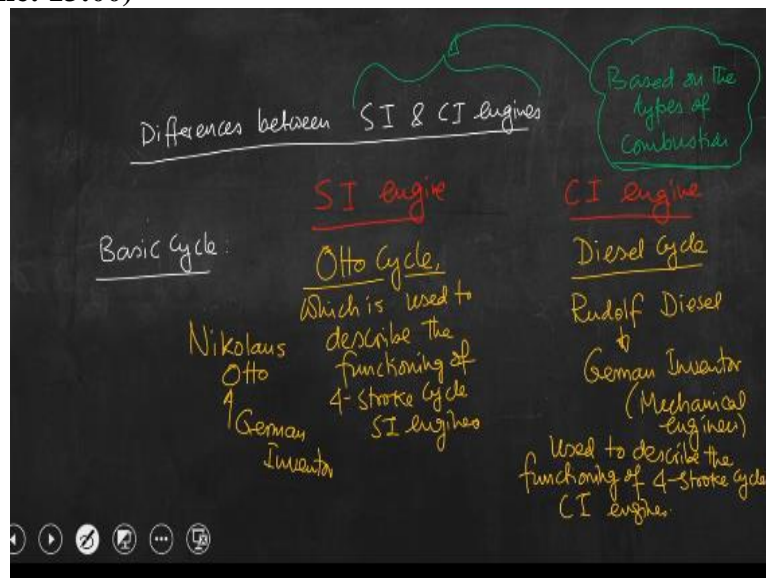 Differences between SI & CI engines
Based on the
types of
combustion
SI engine
CI engine
Basic Cycle:
Otto Cycle,
which is used to
describe the
functioning of
4-stroke cycle
SI engines
Nikolaus
Otto
German
Inventor
Diesel Cycle
Rudolf Diesel
German Inventor
(Mechanical
engineer)
Used to describe the
functioning of 4-stroke cycle
CI engines.